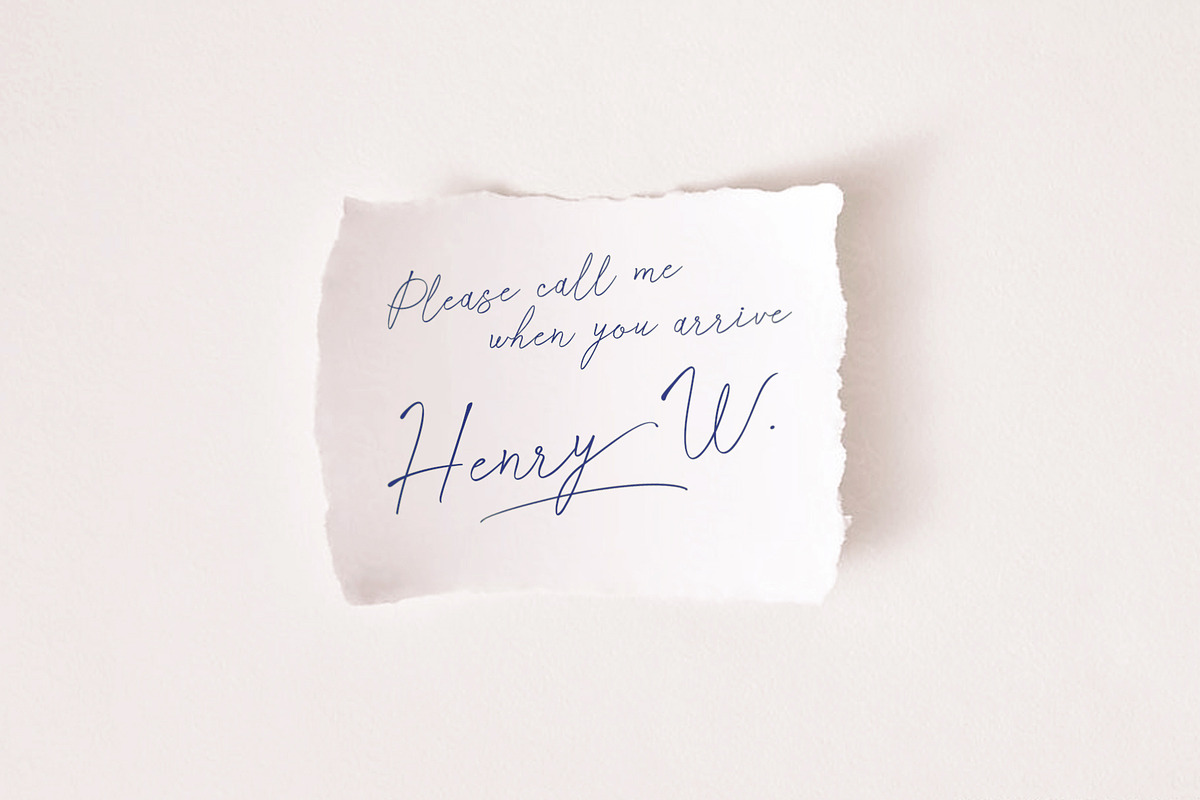 Please call me
when you arrive
Henry W.